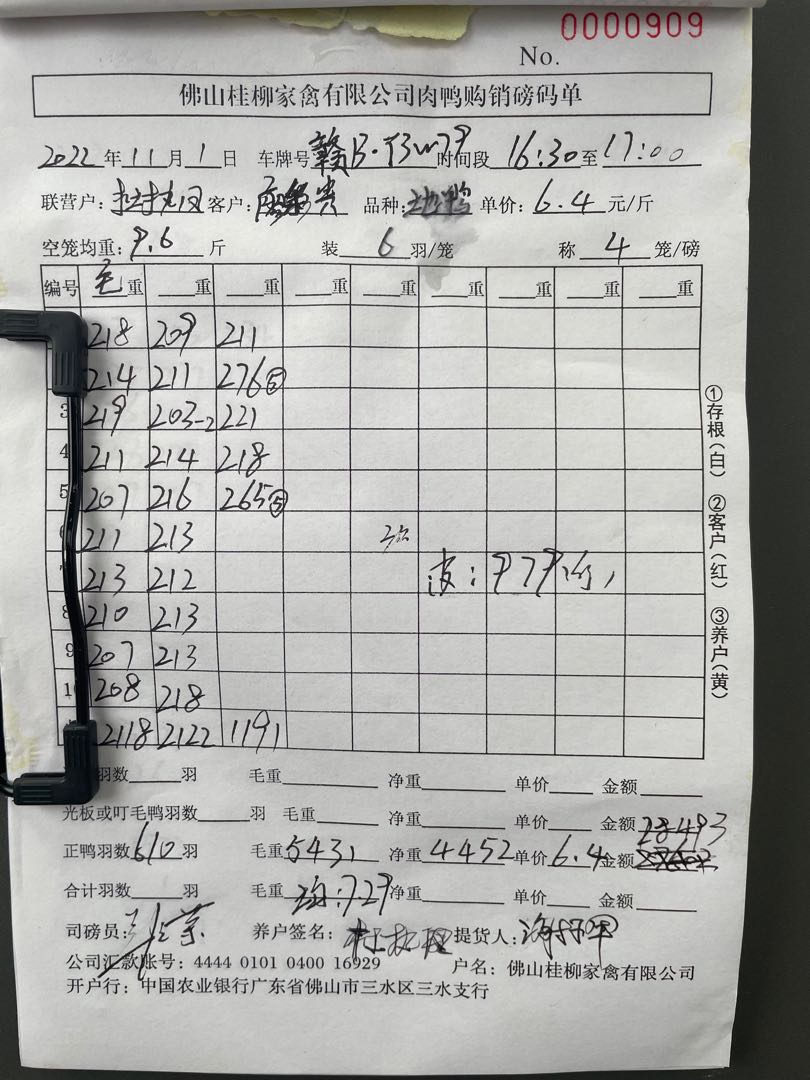 0000909
No.
佛山桂柳家禽有限公司肉鸭购销磅码单
2022年11月1日 车牌号赣B· 时间段16:30至17:00
联营户: 客户:贵 品种:地鸭 单价:6.4元/斤
空笼均重:9.6斤 装6羽/笼 称4笼/磅
编号 毛重 重 重 重 重 重 重 重 重
218 209 211
214 211 276⑤
3 219 203-2 221
4 211 214 218
5 207 216 265⑤
6 211 213
7 213 212 皮:979斤
8 210 213
9 207 213
10 208 218
2118 2122 1191
①存根(白) ②客户(红) ③养户(黄)
羽数 羽 毛重 净重 单价 金额
光板或叮毛鸭羽数 羽 毛重 净重 单价 金额 28493
正鸭羽数610羽 毛重5431 净重4452 单价6.4 金额
合计羽数 羽 毛重 均:7.29 净重 单价 金额
司磅员: 养户签名: 提货人:
公司汇款账号: 4444 0101 0400 16929 户名: 佛山桂柳家禽有限公司
开户行: 中国农业银行广东省佛山市三水区三水支行